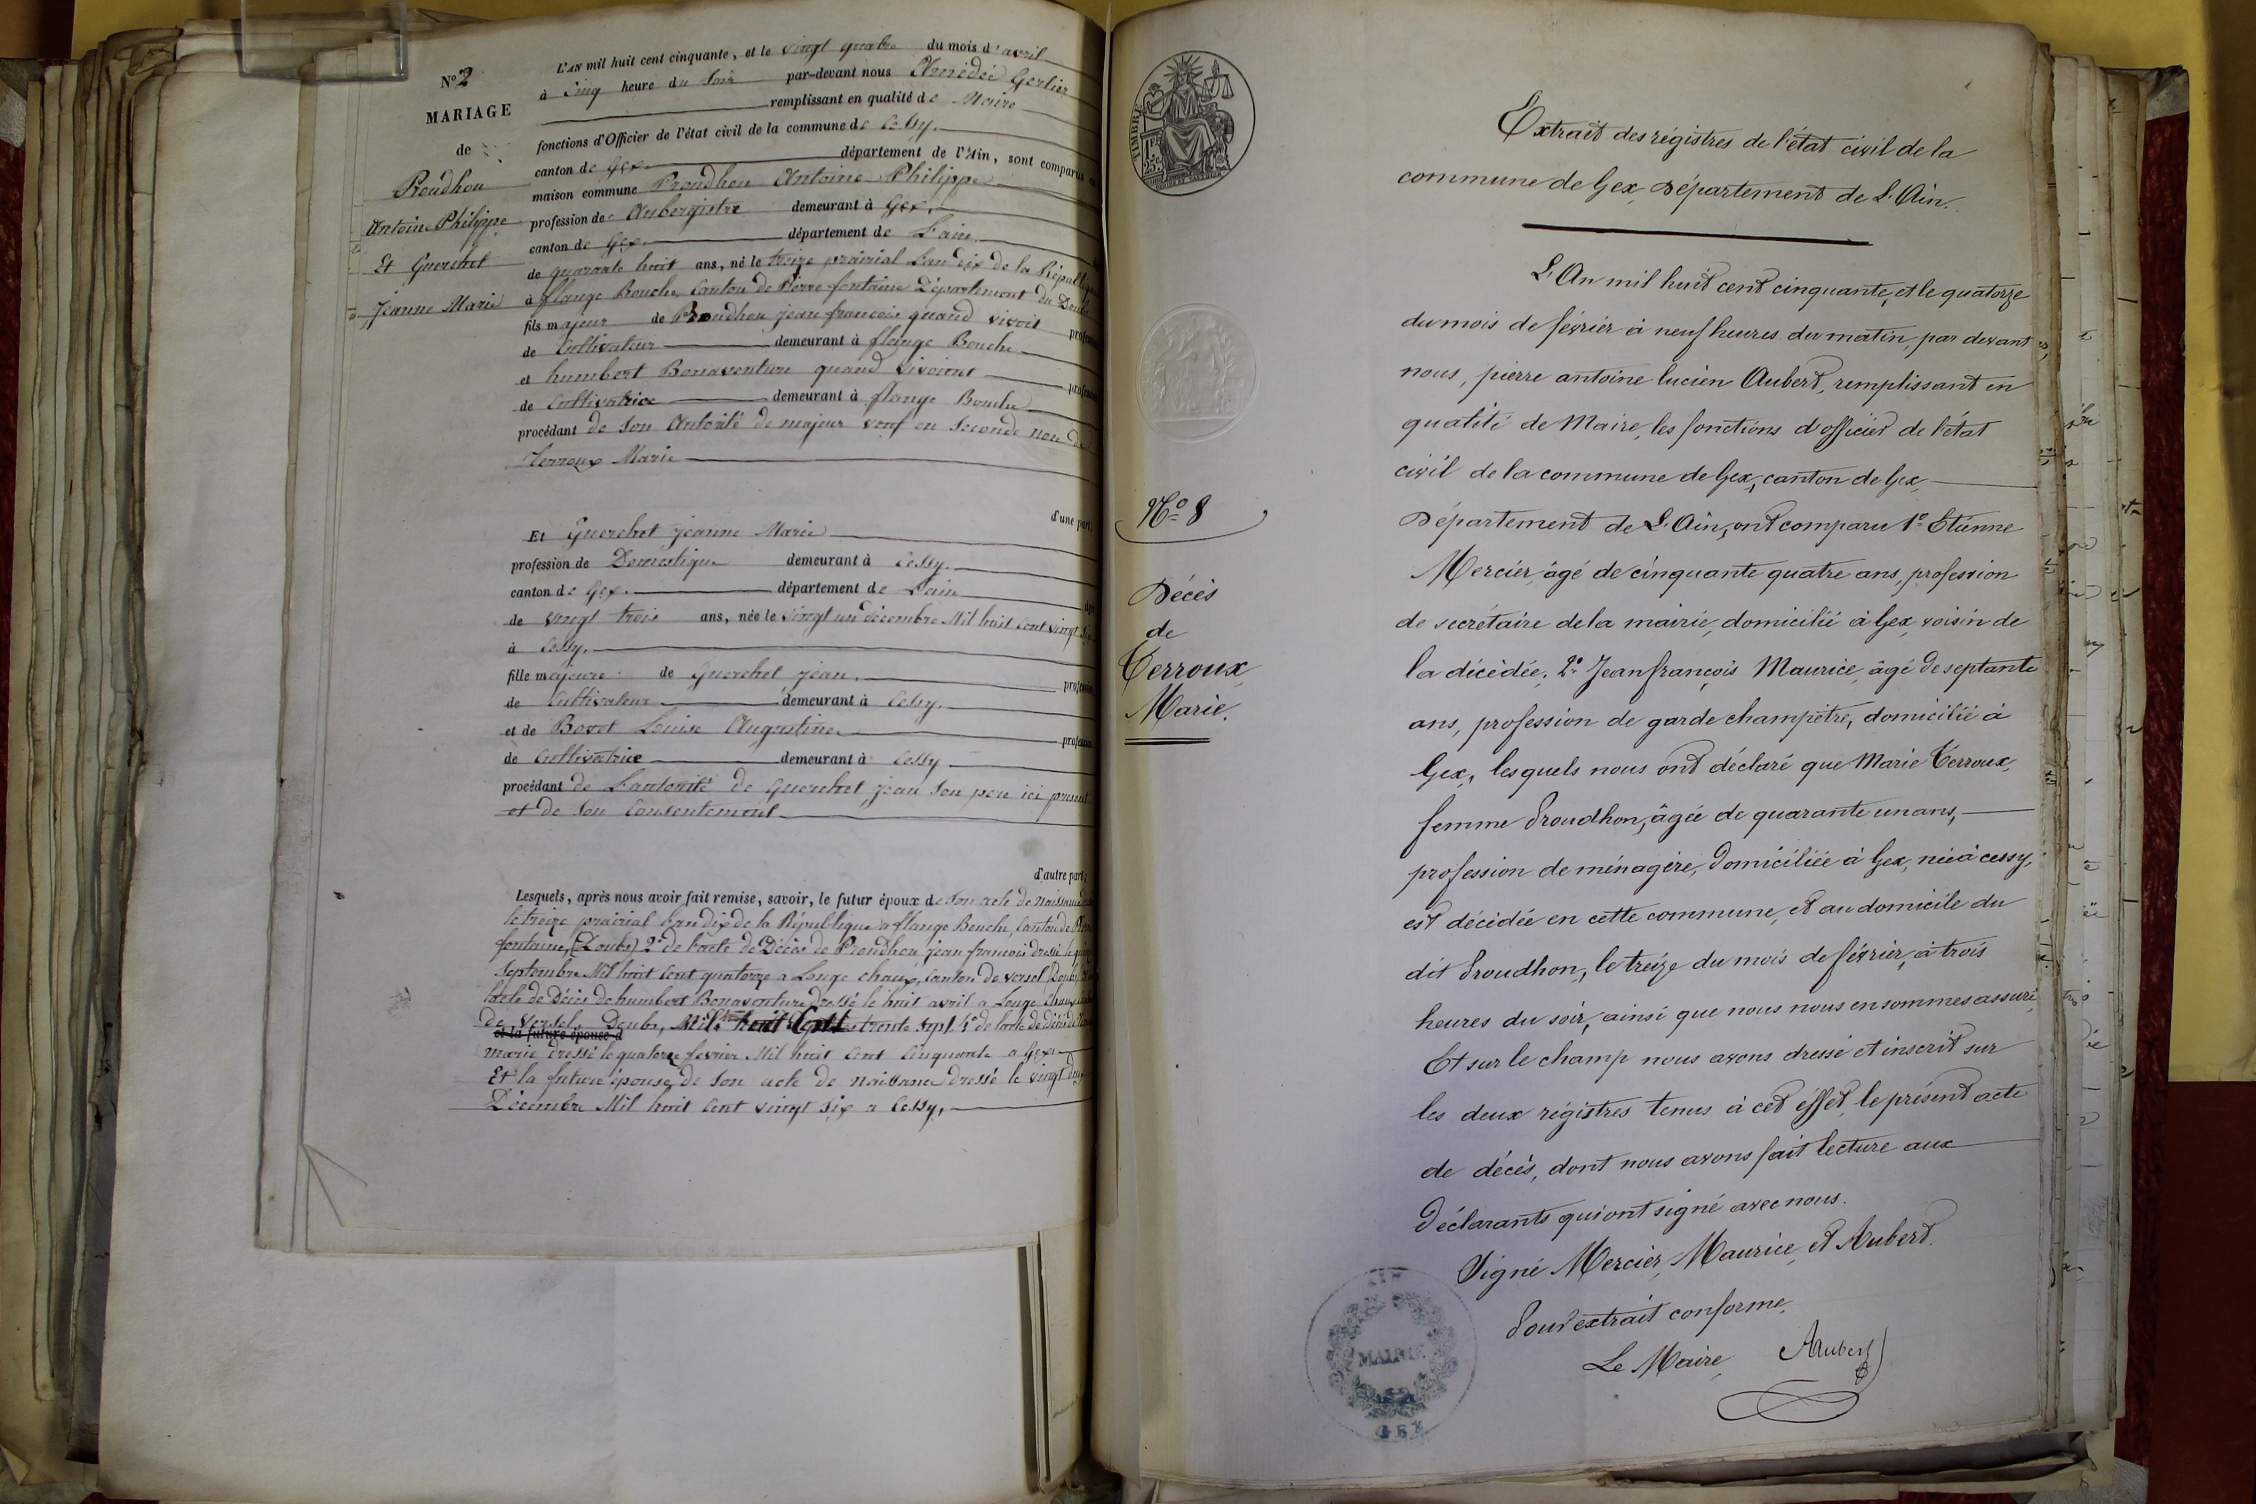 N° 2
MARIAGE
de
Proudhon
Antoine Philippe
Et Guerchet
Jeanne Marie
L'AN mil huit cent cinquante, et le vingt quatre du mois d'avril
à cinq heure du soir par-devant nous Amédée Gerlier
remplissant en qualité de Maire
fonctions d'Officier de l'état civil de la commune de Cessy.
canton de Gex département de l'Ain, sont comparus
maison commune Proudhon Antoine Philippe
profession de Aubergiste demeurant à Gex,
canton de Gex département de L'ain
de quarante huit ans, né le treize prairial L'an dix de la Républiq
à flange Bouche, Canton de Pierre fontaine Département du Doubs
fils majeur de Proudhon jean francois quand vivoit
de Cultivateur demeurant à flange Bouche
et humbert Bonaventure quand vivoient
de Cultivatrice demeurant à flange Bouche
procédant de son Autorité de majeur veuf en seconde noce de
Terroux Marie
d'une part
Et Guerchet jeanne Marie
profession de Domestique demeurant à Cessy.
canton de Gex. département de L'ain
de vingt trois ans, née le vingt un décembre Mil huit cent vingt six
à Cessy.
fille majeure de Guerchet jean.
de Cultivateur demeurant à Cessy.
et de Bovet Louise Augustine
de Cultivatrice demeurant à Cessy
procédant de L'autorité de Guerchet jean son pere ici présent
et de son Consentement
d'autre part;
Lesquels, après nous avoir fait remise, savoir, le futur époux de son acte de naissance
le treize prairial l'an dix de la République a flange Bouche, Canton de Pierre
fontaine, (Doubs) 2° de l'acte de Décès de Proudhon jean francois dressé le
septembre Mil huit Cent quatorze a Longe chaux, Canton de versel (Doubs)
l'acte de Décès de humbert Bonaventure dressé le huit avril a Longe chaux
de Versel, Doubs, Mil huit Cent trente sept 4° de l'acte de décès de
et la future épouse d
marie dressé le quatorze fevrier Mil huit Cent Cinquante a Gex
Et la future épouse de son acte de naissance dressé le vingt deux
Décembre Mil huit Cent vingt six a Cessy,
TIMBRE
N° 8
Décès
de
Terroux
Marie.
Extrait des régistres de l'état civil de la
commune de Gex, Département de L'Ain.
L'An mil huit cent cinquante, et le quatorze
du mois de février à neuf heures du matin, par devant
nous, pierre antoine lucien Aubert, remplissant en
qualité de Maire, les fonctions d'officier de l'état
civil de la commune de Gex, canton de Gex,
Département de L'Ain, ont comparu 1° Etienne
Mercier, âgé de cinquante quatre ans, profession
de secrétaire de la mairie, domicilié à Gex, voisin de
la décédée; 2° Jean françois Maurice, âgé de septante
ans, profession de garde champêtre, domicilié à
Gex, lesquels nous ont déclaré que Marie Terroux,
femme Proudhon, âgée de quarante un ans,
profession de ménagère, domiciliée à Gex, née à cessy,
est décédée en cette commune, et au domicile du
dit Proudhon, le treize du mois de février, à trois
heures du soir, ainsi que nous nous en sommes assuré,
Et sur le champ nous avons dressé et inscrit sur
les deux régistres tenus à cet éffet, le présent acte
de décès, dont nous avons fait lecture aux
Déclarants qui ont signé avec nous.
Signé Mercier, Maurice, et Aubert.
Pour extrait conforme,
Le Maire, Aubert
MAIRIE
GEX